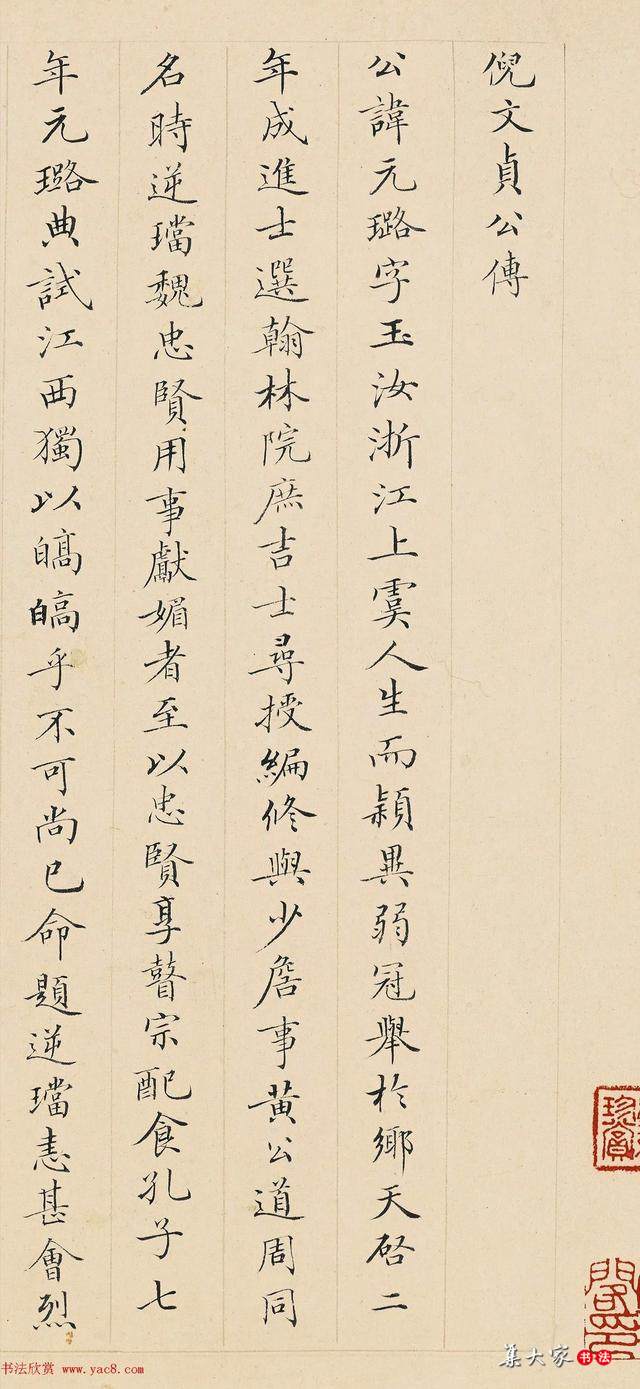 倪文貞公傳
公諱元璐字玉汝浙江上虞人生而穎異弱冠舉於鄉天啓二
年成進士選翰林院庶吉士尋授編修與少詹事黄公道周同
名時逆璫魏忠賢用事獻媚者至以忠賢享瞽宗配食孔子七
年元璐典試江西獨以皜皜乎不可尚已命題逆璫恚甚會烈
书法欣赏 www.yac8.com
集大家 书法